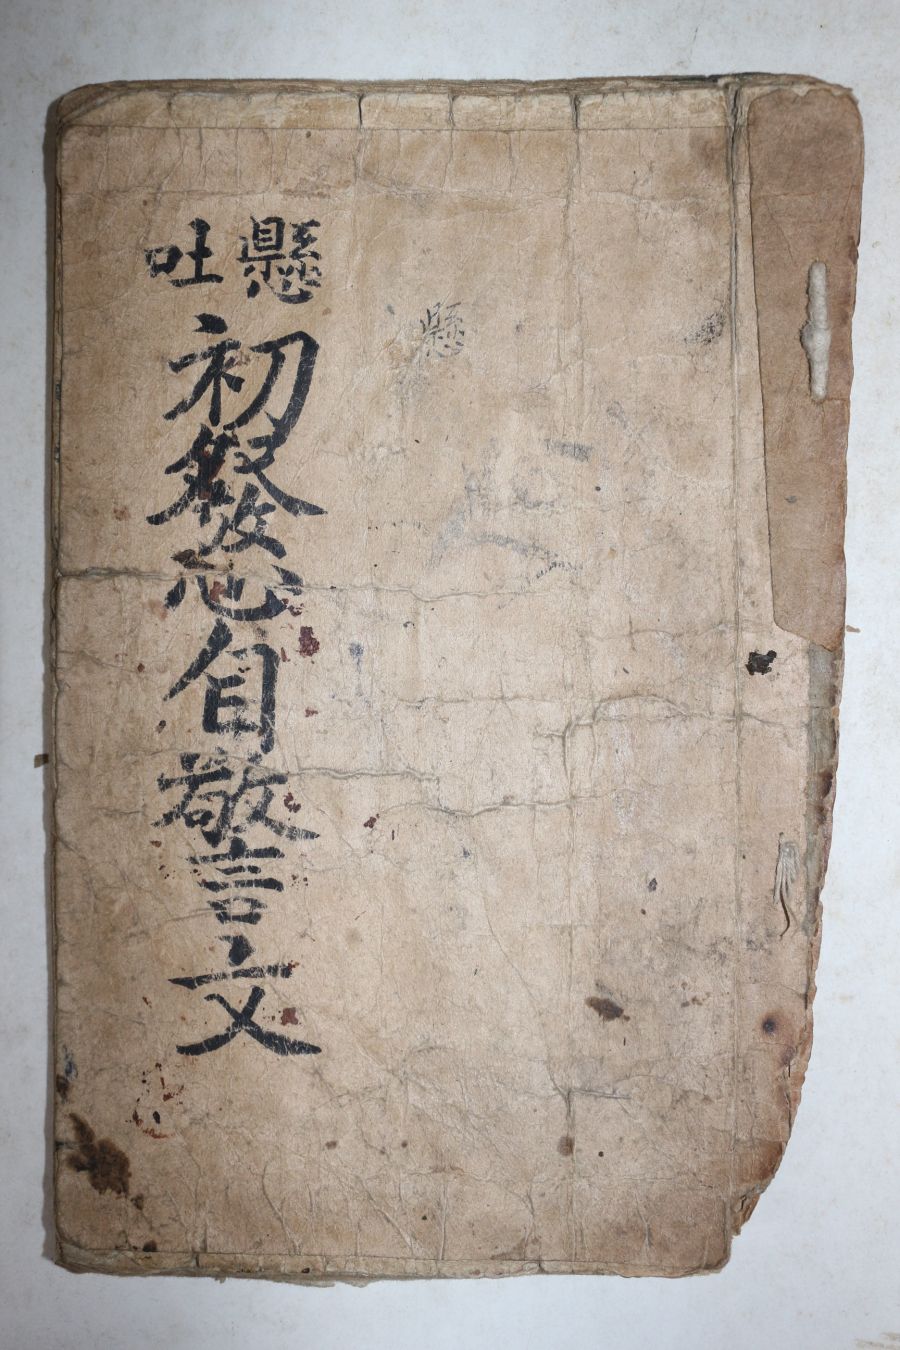 懸吐
初發心自警文
懸